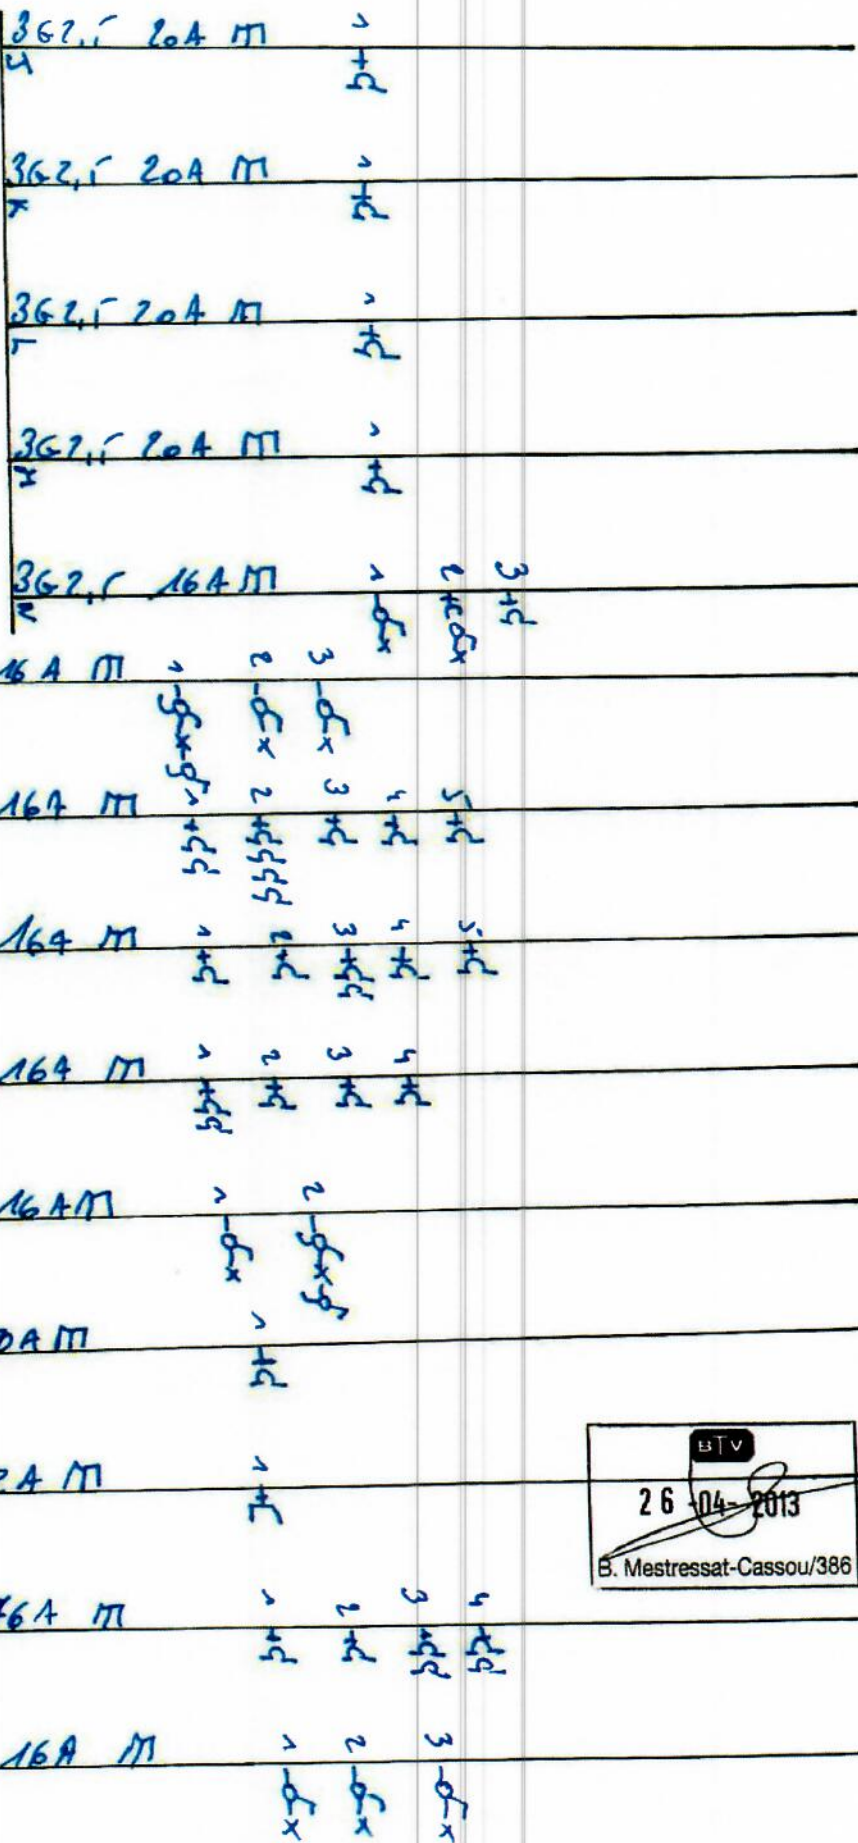 3G2,5 20A m 1
H
3G2,5 20A m 1
K
3G2,5 20A m 1
L
3G2,5 20A m 1
M
3G2,5 16A m 1 2 3
N
16A m 1 2 3
16A m 1 2 3 4 5
16A m 1 2 3 4 5
16A m 1 2 3 4
16A m 1 2
0A m 1
2A m 1
BTV
26-04-2013
B. Mestressat-Cassou/386
16A m 1 2 3 4
16A m 1 2 3